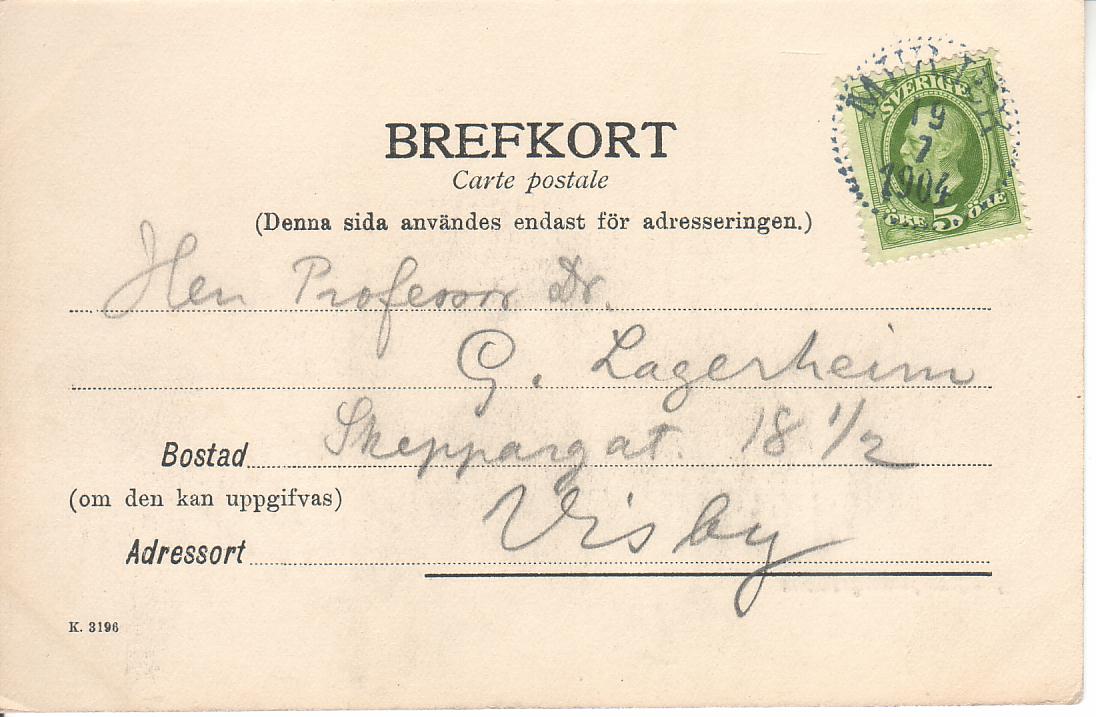 BREFKORT
Carte postale
(Denna sida användes endast för adresseringen.)
SVERIGE
19
7
1904
ÖRE 5 ÖRE
Herr Professor Dr.
G. Lagerheim
Bostad Skeppargat. 18 1/2
(om den kan uppgifvas)
Adressort Visby
K. 3196